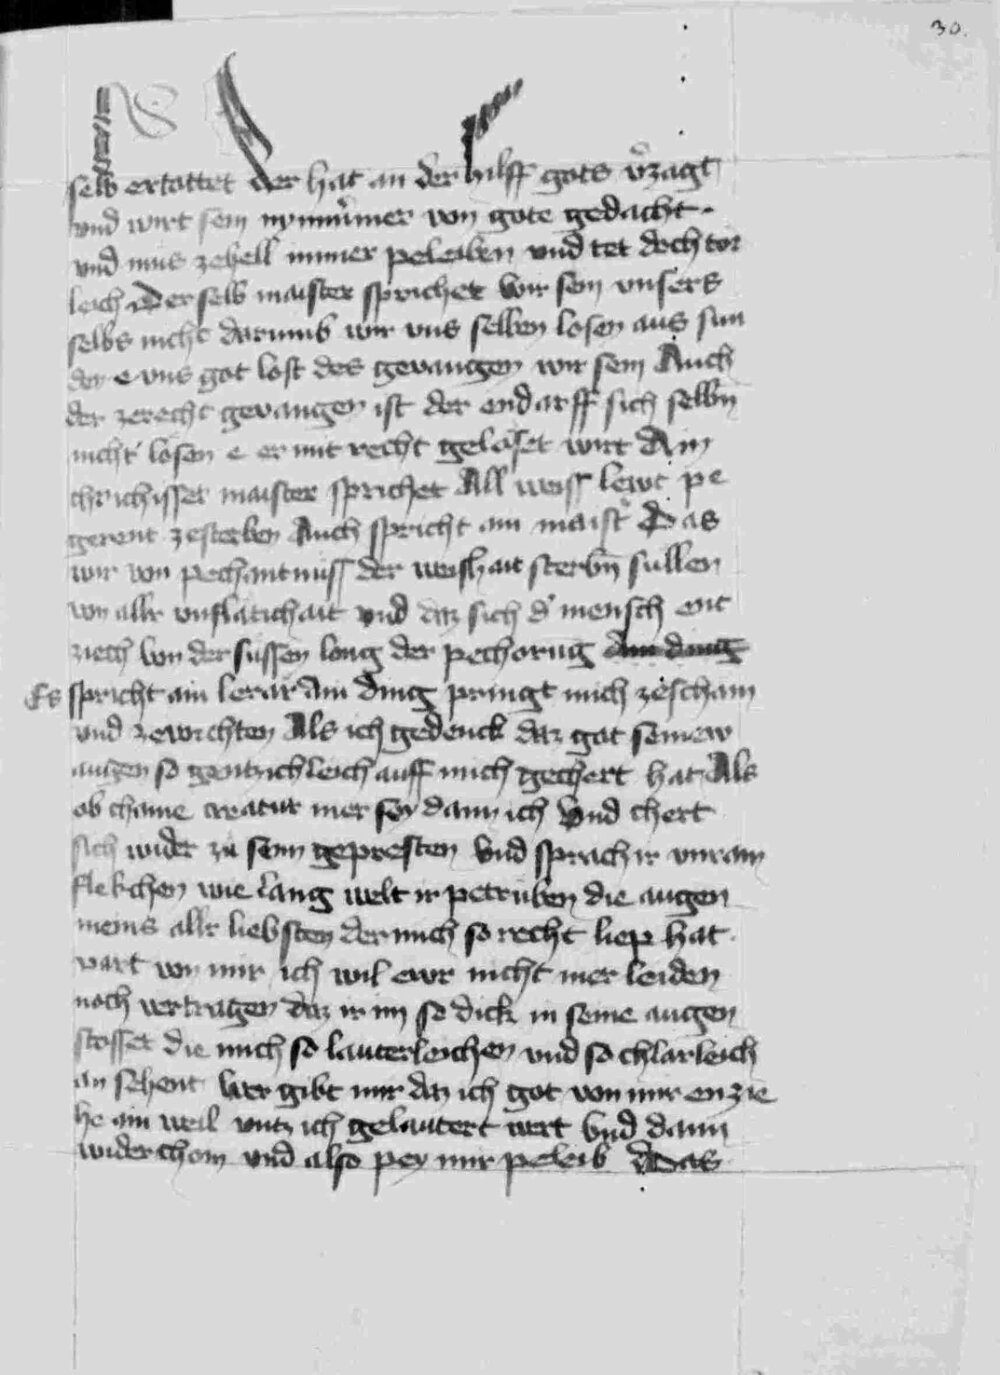 30.
selb ertottet der hat an der hilff gots v̾zagt
und wirt sein nymm̾mer von gote gedacht.
und mus zehell immer peleiben und tet doch tor
leich Derselb maister sprichet Wir sein unsers
selbs nicht darumb wir uns selben losen aus sun
den e uns got lost des gevangen wir sein Auch
der zerecht gevangen ist der endarff sich selbn̄
nicht losen e er mit recht geloset wirt Ain
chrichisset maister sprichet All weiss lewt pe
gerent zesterben Auch spricht ain maist̾ Das
wir von pechantnuss der weishait sterbn̄ sullen
von allr unflatichait und daz sich d̾ mensch ent
ziech von der sussen long der pechorug ain ding
Es spricht ain lerar Ain ding pringt mich zescham
und zevorchten Als ich gedenck daz got seinew
augen so gentzichleich auff mich gechert hat Als
ob chaine creatur mer sey dann ich Und chert
sich wider zu sein gepresten Und sprach ir unrain
flekchen wie lang welt ir petruben die augen
meins allr liebsten der mich so recht liep hat.
vart von mir ich wil ewr nicht mer leiden
noch vertragen daz ir im so dick in seine augen
stosset die mich so lauterleichen und so chlarleich
an sehent Wer gibt mir daz ich got von mir enzie
he ain weil untz ich gelautert wert Und dann
widerchom und also pey mir peleib Das